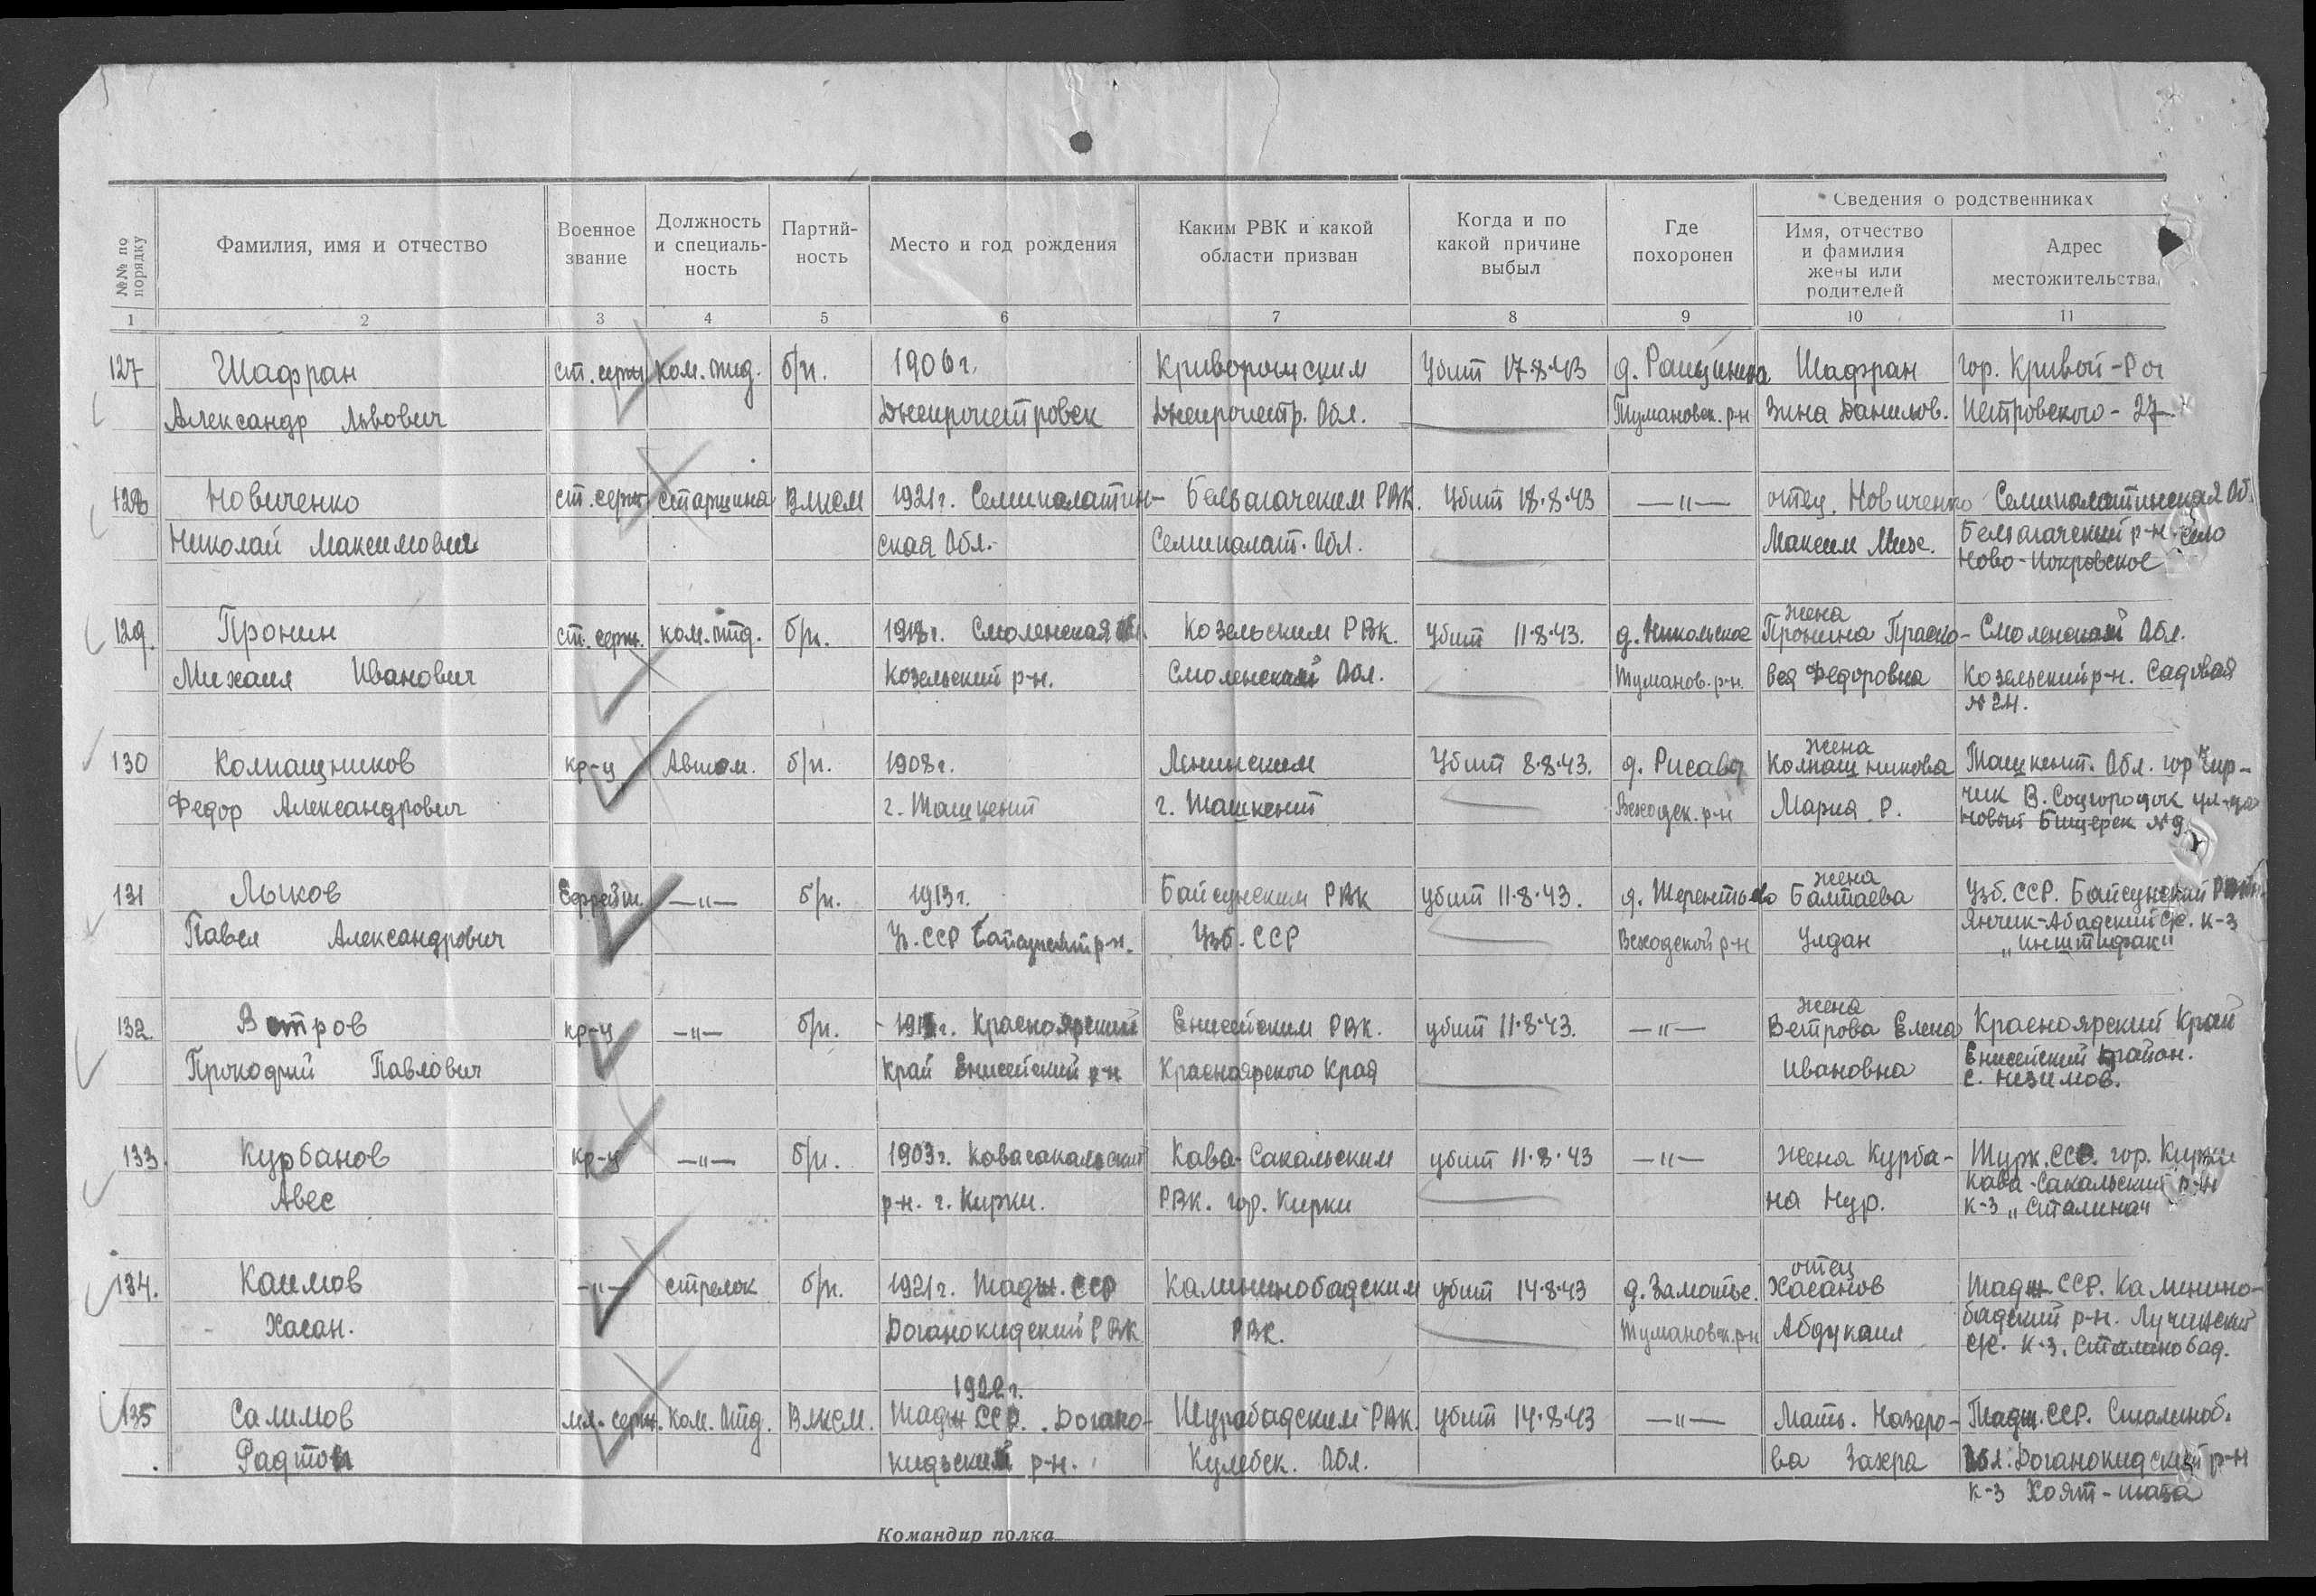 №№ по порядку
Фамилия, имя и отчество
Военное звание
Должность и специаль-ность
Партий-ность
Место и год рождения
Каким РВК и какой области призван
Когда и по какой причине выбыл
Где похоронен
Сведения о родственниках
Имя, отчество и фамилия жены или родителей
Адрес местожительства
1 2 3 4 5 6 7 8 9 10 11
127 Шафран ст. серж ком. отд. б/п. 1906 г. Криворожским Убит 17.8.43 д. Шафран гор. Кривой-Рог
Александр Львович Днепропетровск Днепропетр. Обл. Тумановск. р-н Зина Данилов. Петровского - 27
128 Новиченко ст. серж старшина ВЛКСМ 1921 г. Семипалатин- Бельагачским РВК. Убит 18.8.43 —"— отец. Новиченко Семипалатинская Об.
Николай Максимович ская Обл. Семипалат. Обл. Максим Мих. Бельагачский р-н. село
Ново-Покровское
жена
129. Пронин ст. серж. ком. отд. б/п. 1918 г. Смоленская Козельским РВК. Убит 11.8.43. д. Никольское Пронина Праско- Смоленской Обл.
Михаил Иванович Козельский р-н. Смоленской Обл. Туманов. р-н. вея Федоровна Козельский р-н. Садовая
№ 24.
жена
130 Колпащников кр-ц Автом. б/п. 1908 г. Ленинским Убит 8.8.43. д. Колпащникова Ташкент. Обл. гор Чир-
Федор Александрович г. Ташкент г. Ташкент Мария Р. чик В. Соцгородок
Новый №9
жена
131 Лыков Ефрейт. —"— б/п. 1913 г. Байсунским РВК убит 11.8.43. д. Терентьево Балтаева Узб. ССР. Байсунский
Павел Александрович Уз. ССР Байсунский р-н. Узб. ССР Всходской р-н Улдан Янчик-Абадский с/с. к-з
„Инштифак"
жена
132. Ветров кр-ц —"— б/п. Красноярский Енисейским РВК. убит 11.8.43. —"— Ветрова Елена Красноярский Край
Прокофий Павлович Край Енисейский р-н Красноярского Края Ивановна Енисейский район.
с. Незимов.
133. Курбанов кр-ц —"— б/п. 1903 г. Кавасакальский Кава-Сакальским убит 11.8.43 —"— жена Курба- Турк. ССР. гор. Кирки
Авес р-н. г. Кирки. РВК. гор. Кирки на Нур. Кава-Сакальский р-н
к-з „Сталина"
отец
134. Каимов —"— стрелок б/п. 1921 г. Тадж. ССР Калининобадским убит 14.8.43 д. Замотье. Хасанов Тадж. ССР. Калинино-
Хасан. Доганокидский РВК РВК. Тумановск. р-н Абдукаил бадский р-н. Лучинский
с/с. к-з. Сталинобад.
1922 г.
135 Салимов мл. серж. ком. отд. ВЛКСМ. Тадж ССР. Догано- Шурабадским РВК. убит 14.8.43 —"— Мать. Назаро- Тадж. ССР. Сталиноб.
кидьский р-н. Кулебск. Обл. ва Захра Обл. Доганокидский р-н
к-з Хоят-
Командир полка